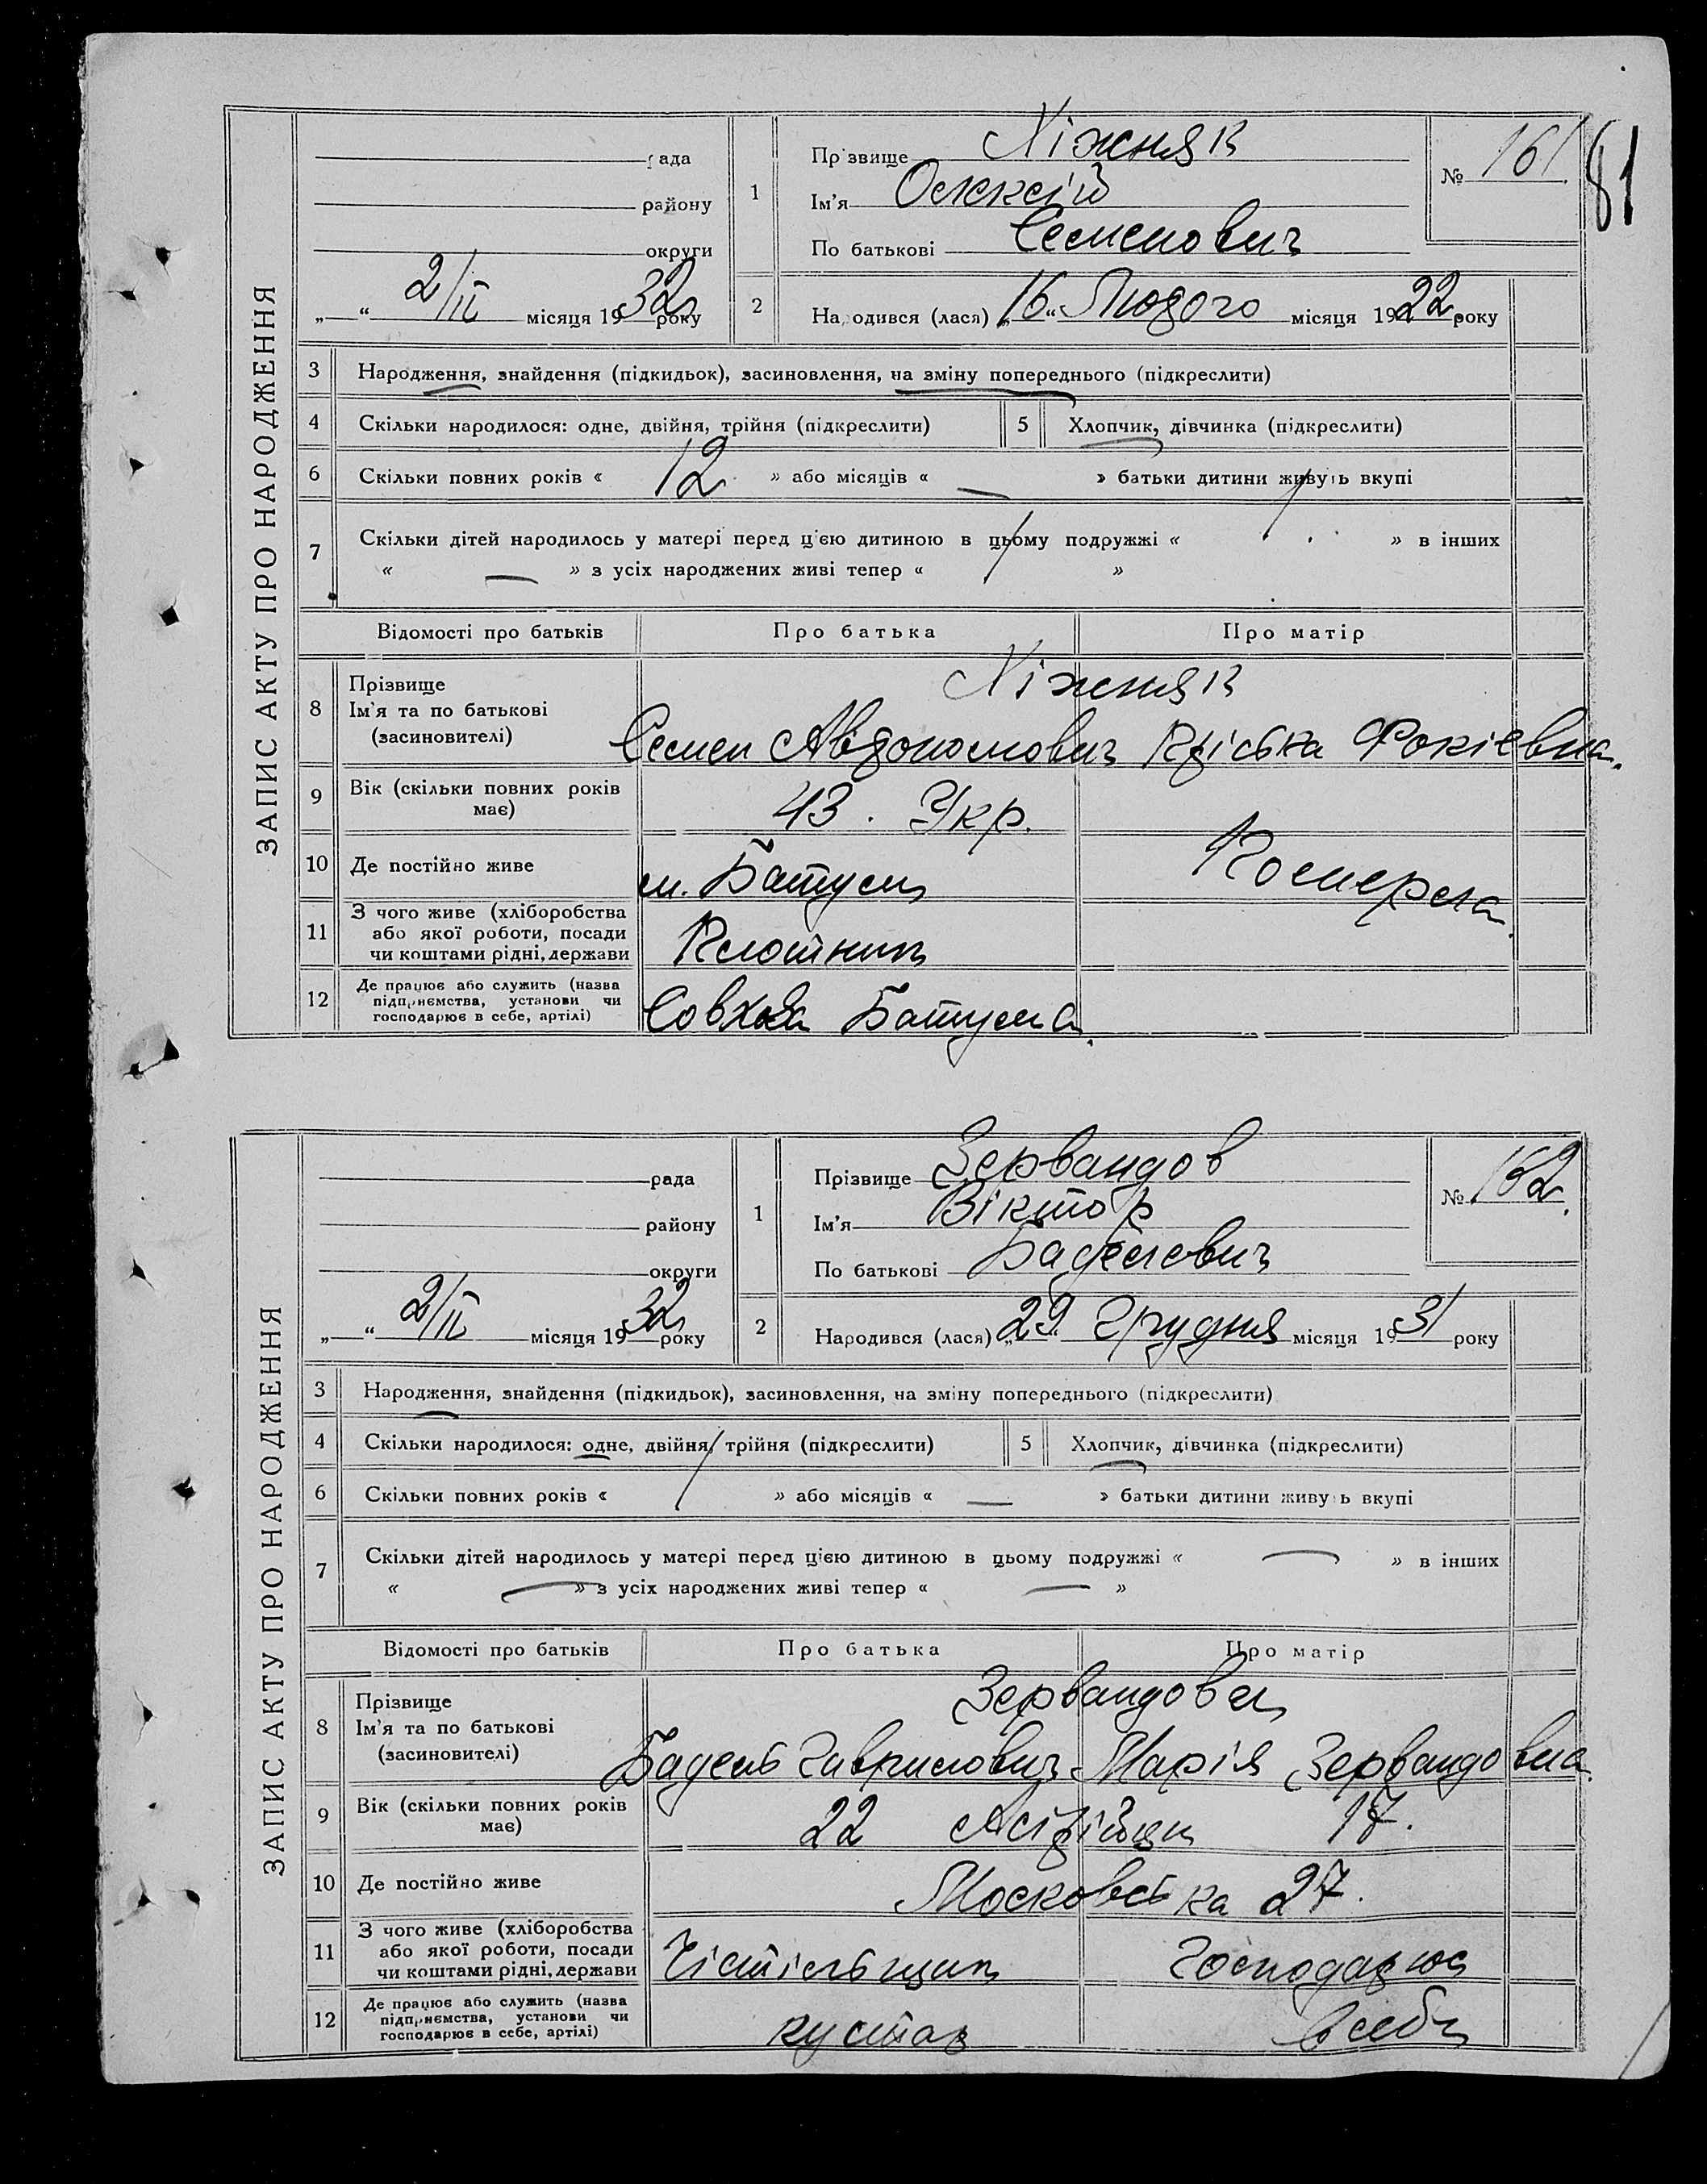 ЗАПИС АКТУ ПРО НАРОДЖЕННЯ
рада
району
округи
„ “ 2/II місяця 1932 року
1 Прізвище Ніжняк
Ім'я Олексій
По батькові Семенович
№ 161
81
2 Народився (лася) „16“ Лютого місяця 1922 року
3 Народження, знайдення (підкидьок), засиновлення, на зміну попереднього (підкреслити)
4 Скільки народилося: одне, двійня, трійня (підкреслити) 5 Хлопчик, дівчинка (підкреслити)
6 Скільки повних років « 12 » або місяців « — » батьки дитини живуть вкупі
7 Скільки дітей народилось у матері перед цією дитиною в цьому подружжі « » в інших
« — » з усіх народжених живі тепер « »
Відомості про батьків Про батька Про матір
8 Прізвище Ніжняк
Ім'я та по батькові
(засиновителі) Семен Авдономович Фокієвна.
9 Вік (скільки повних років має) 43. Укр.
10 Де постійно живе м. Батум Померла.
11 З чого живе (хліборобства або якої роботи, посади чи коштами рідні, держави Плотник
12 Де працює або служить (назва підприємства, установи чи господарює в себе, артілі) Батума.
ЗАПИС АКТУ ПРО НАРОДЖЕННЯ
рада
району
округи
„ “ 2/II місяця 1932 року
1 Прізвище Зервандов
Ім'я Віктор
По батькові Баделович
№ 162.
2 Народився (лася) „29. Грудня місяця 1931 року
3 Народження, знайдення (підкидьок), засиновлення, на зміну попереднього (підкреслити)
4 Скільки народилося: одне, двійня, трійня (підкреслити) 5 Хлопчик, дівчинка (підкреслити)
6 Скільки повних років « 1 » або місяців « — » батьки дитини живуть вкупі
7 Скільки дітей народилось у матері перед цією дитиною в цьому подружжі « — » в інших
« — » з усіх народжених живі тепер « — »
Відомості про батьків Про батька Про матір
8 Прізвище Зервандови
Ім'я та по батькові
(засиновителі) Бадель Гаврилович Марія Зервандовна.
9 Вік (скільки повних років має) 22 Асірійци 17.
10 Де постійно живе Московська 27.
11 З чого живе (хліборобства або якої роботи, посади чи коштами рідні, держави Чістільщик Господарює
12 Де працює або служить (назва підприємства, установи чи господарює в себе, артілі) кустар в себе